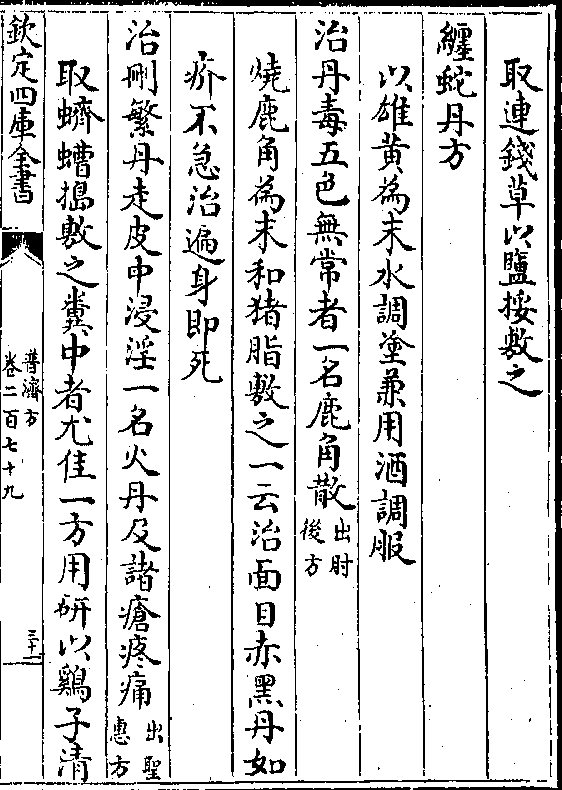 取連錢草以鹽挼敷之
纏蛇丹方
以雄黃為末水調塗兼用酒調服
治丹毒五色無常者一名鹿角散出肘後方
燒鹿角為末和猪脂敷之一云治面目赤黑丹如
疥不急治遍身即死
治刪繁丹走皮中浸淫一名火丹及諸瘡疼痛出聖惠方
取蠐螬搗敷之糞中者尤佳一方用研以鷄子清
欽定四庫全書
普濟方
卷二百七十九
三十一